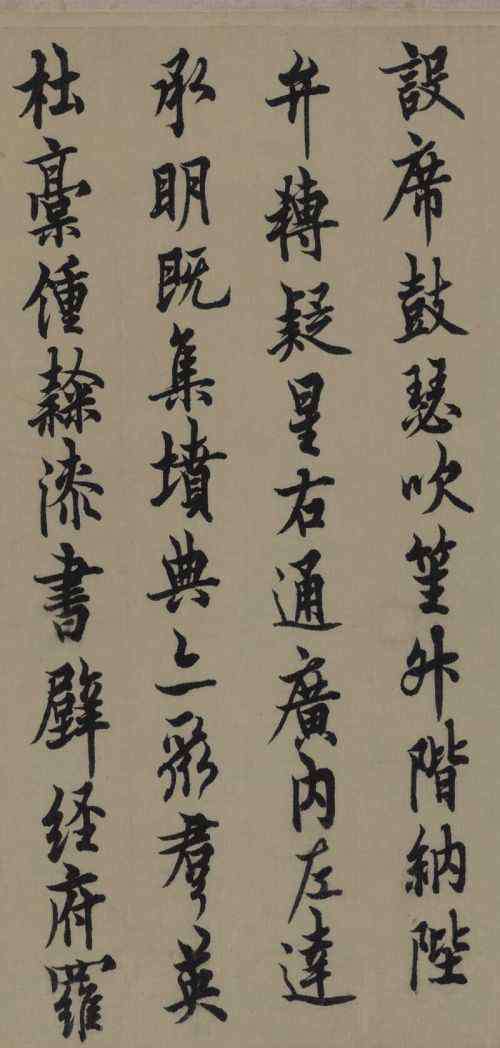 設席鼓瑟吹笙升階納陛
弁轉疑星右通廣内左達
承明既集墳典亦聚群英
杜稾鍾隸漆書壁経府羅